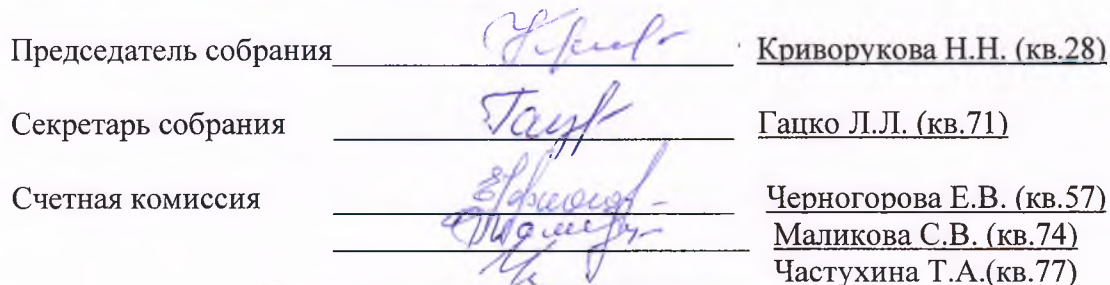 Председатель собрания Криворукова Н.Н. (кв.28)
Секретарь собрания Гацко Л.Л. (кв.71)
Счетная комиссия Черногорова Е.В. (кв.57)
Маликова С.В. (кв.74)
Частухина Т.А.(кв.77)